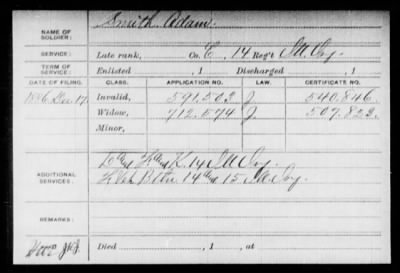 NAME OF SOLDIER: Smith, Adam.
SERVICE: Late rank, Co. E, 14 Reg't Ill. Cav.
TERM OF SERVICE: Enlisted , 1 Discharged , 1
DATE OF FILING. CLASS. APPLICATION NO. LAW. CERTIFICATE NO.
1886 Dec. 17. Invalid, 591,503 J. 540,846.
Widow, 712,574 J. 507,823.
Minor,
ADDITIONAL SERVICES:
K. 14 Ill. Cav.
14 15 Ill. Cav.
REMARKS:
Died , 1 , at